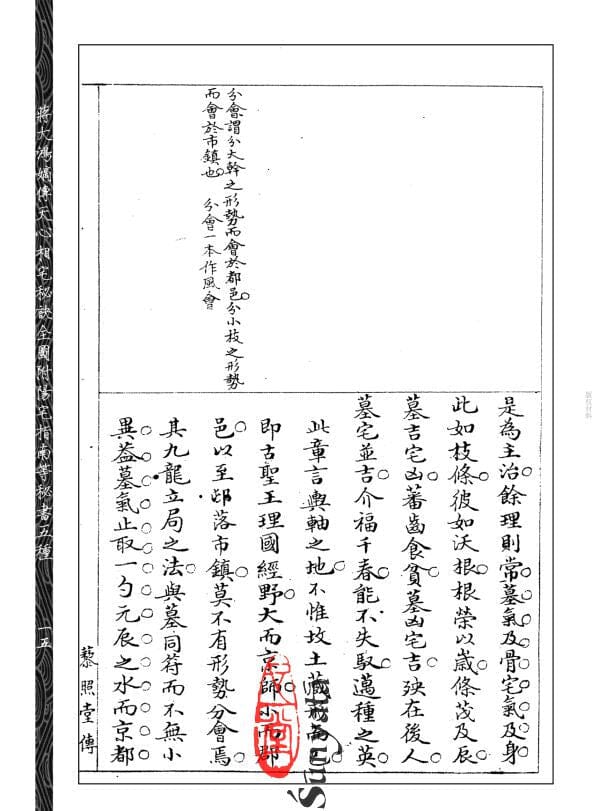 分會謂分大幹之形勢而會於都邑分小枝之形勢
而會於市鎮也 分會一本作風會
是為主治餘理則常墓氣及骨宅氣及身
此如枝條彼如沃根根榮以歲條茂及辰
墓吉宅凶蕃齒食貧墓凶宅吉殃在後人
墓宅並吉介福千春能不失馭邁種之英
此章言輿軸之地不惟坟土藏形而已
即古聖王理國經野大而京師小而郡
邑以至邨落市鎮莫不有形勢分會焉
其九龍立局之法與墓同符而不無小
異葢墓氣止取一勺元辰之水而京都
藜照堂傳
蔣大鴻嫡傳天心相宅秘訣全圖附陽宅指南等秘書五種
一五
版权材料